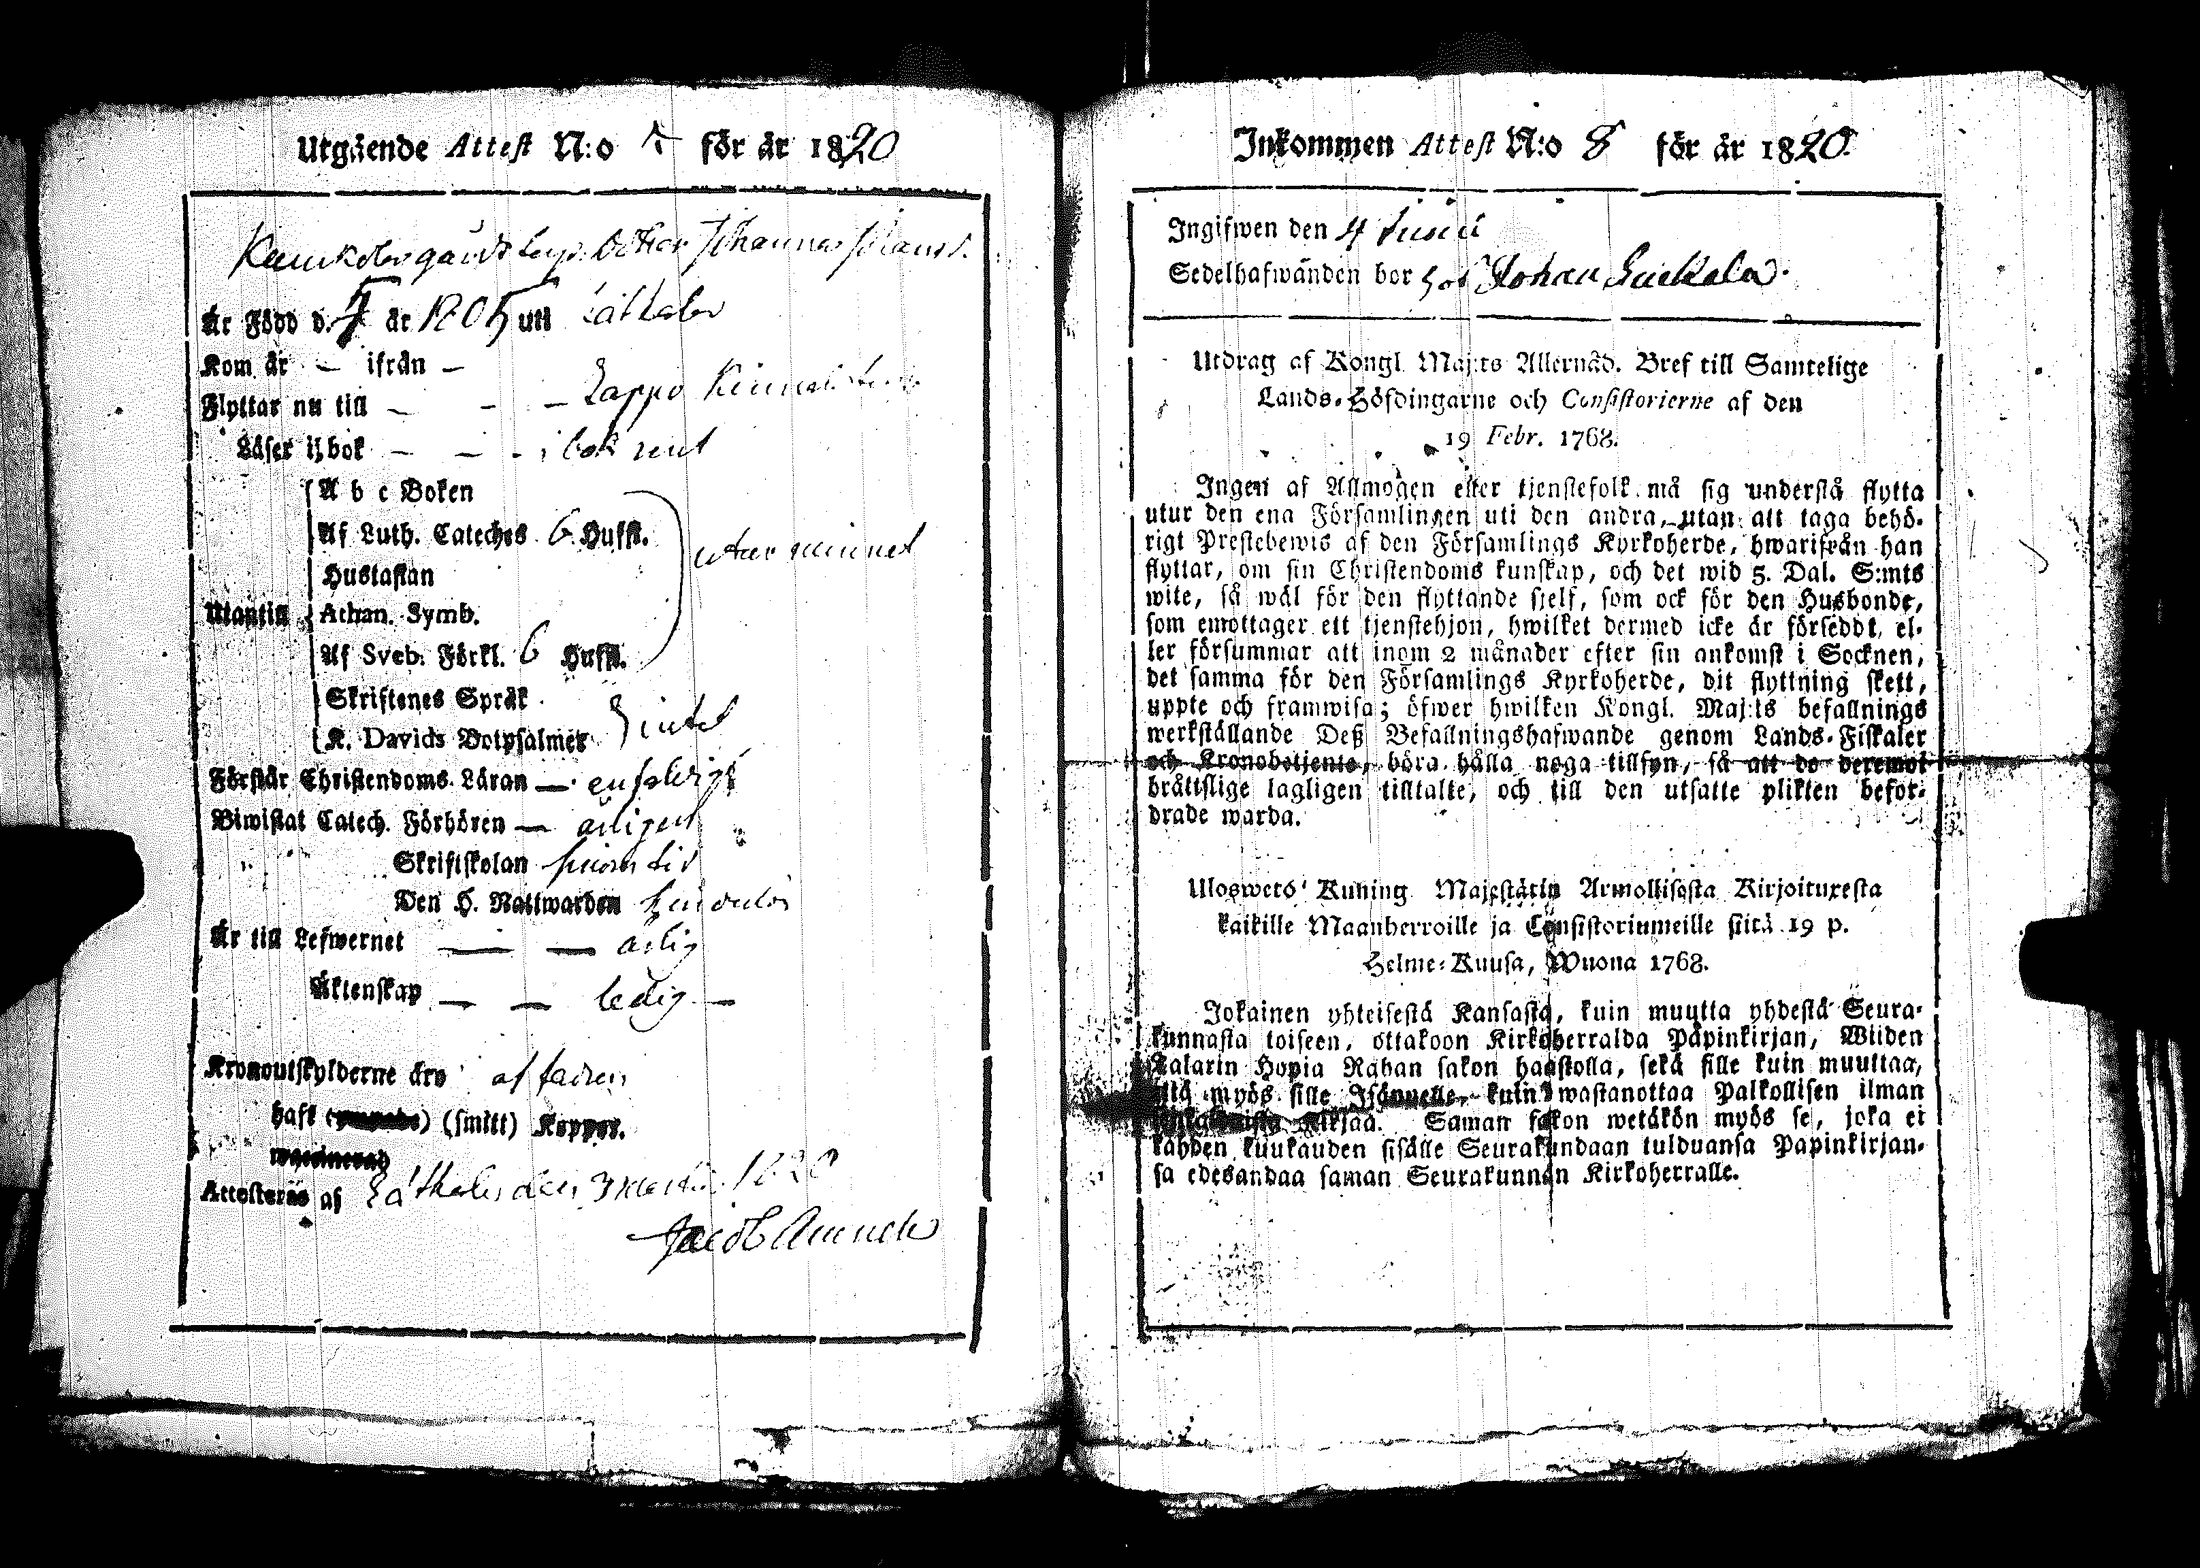 Utgående Attest N:o 5 för år 1820
Johannes
Är Född d. 4/5 är 1805 uti Lältkaln
Kom år – ifrån –
Flyttar nu till – – – Lappo
Läser i bok – – - i bok rent
A b c Boken
Af Luth. Cateches 6 Hufst. utur minnet
Hustaflan
Utantill Athan. Symb.
Af Sveb. Förkl. 6 Hufst.
Skriftenes Språk
K. Davids Botpsalmer intet
Förstår Christendoms Läran — enfaldigt
Biwistat Catech. Förhören — årligen
Skriftskolan
Den H. Nattwarden
Är till Lefwernet — — ärlig
Äktenskap — — ledig —
Kronoutskylderne äro af fadren
haft () (smitt) Koppor.
Attesteras af den 3 1820
Jacob
Inkommen Attest N:o 8 för år 1820.
Ingifwen den 4 Junii
Sedelhafwanden bor hos Johan
Utdrag af Kongl. Maj:ts Allernåd. Bref till Samtelige
Lands-Höfdingarne och Consistorierne af den
19 Febr. 1768.
Ingen af Allmogen eller tjenstefolk må sig understå flytta
utur den ena Församlingen uti den andra, utan att taga behö-
rigt Prestebewis af den Församlings Kyrkoherde, hwarifrån han
flyttar, om sin Christendoms kunskap, och det wid 5. Dal. S:mts
wite, så wäl för den flyttande sjelf, som ock för den Husbonde,
som emottager ett tjenstehjon, hwilket dermed icke är försedt, el-
ler försummar att inom 2 månader efter sin ankomst i Socknen,
det samma för den Församlings Kyrkoherde, dit flyttning skett,
uppte och framwisa; öfwer hwilken Kongl. Maj:ts befallnings
werkställande Deß Befallningshafwande genom Lands-Fiskaler
och Kronobetjente, böra hålla noga tillsyn, så att de deremot
bråttslige lagligen tilltalte, och till den utsatte plikten befor-
drade warda.
Uloswetö Kuning. Majestätin Armollisesta Kirjoituxesta
kaikille Maanherroille ja Consistoriumeille siitä 19 p.
Helme-Kuusa, Wuona 1768.
Jokainen yhteisestä Kansasta, kuin muutta yhdestä Seura-
kunnasta toiseen, ottakoon Kirkoherralda Papinkirjan, Wiiden
Talarin Hopia Rahan sakon haastolla, sekä sille kuin muuttaa,
että myös sille Isännelle, kuin wastanottaa Palkollisen ilman
Saman sakon wetäkön myös se, joka ei
kahden kuukauden sisälle Seurakundaan tulduansa Papinkirjan-
sa edesandaa saman Seurakunnan Kirkoherralle.